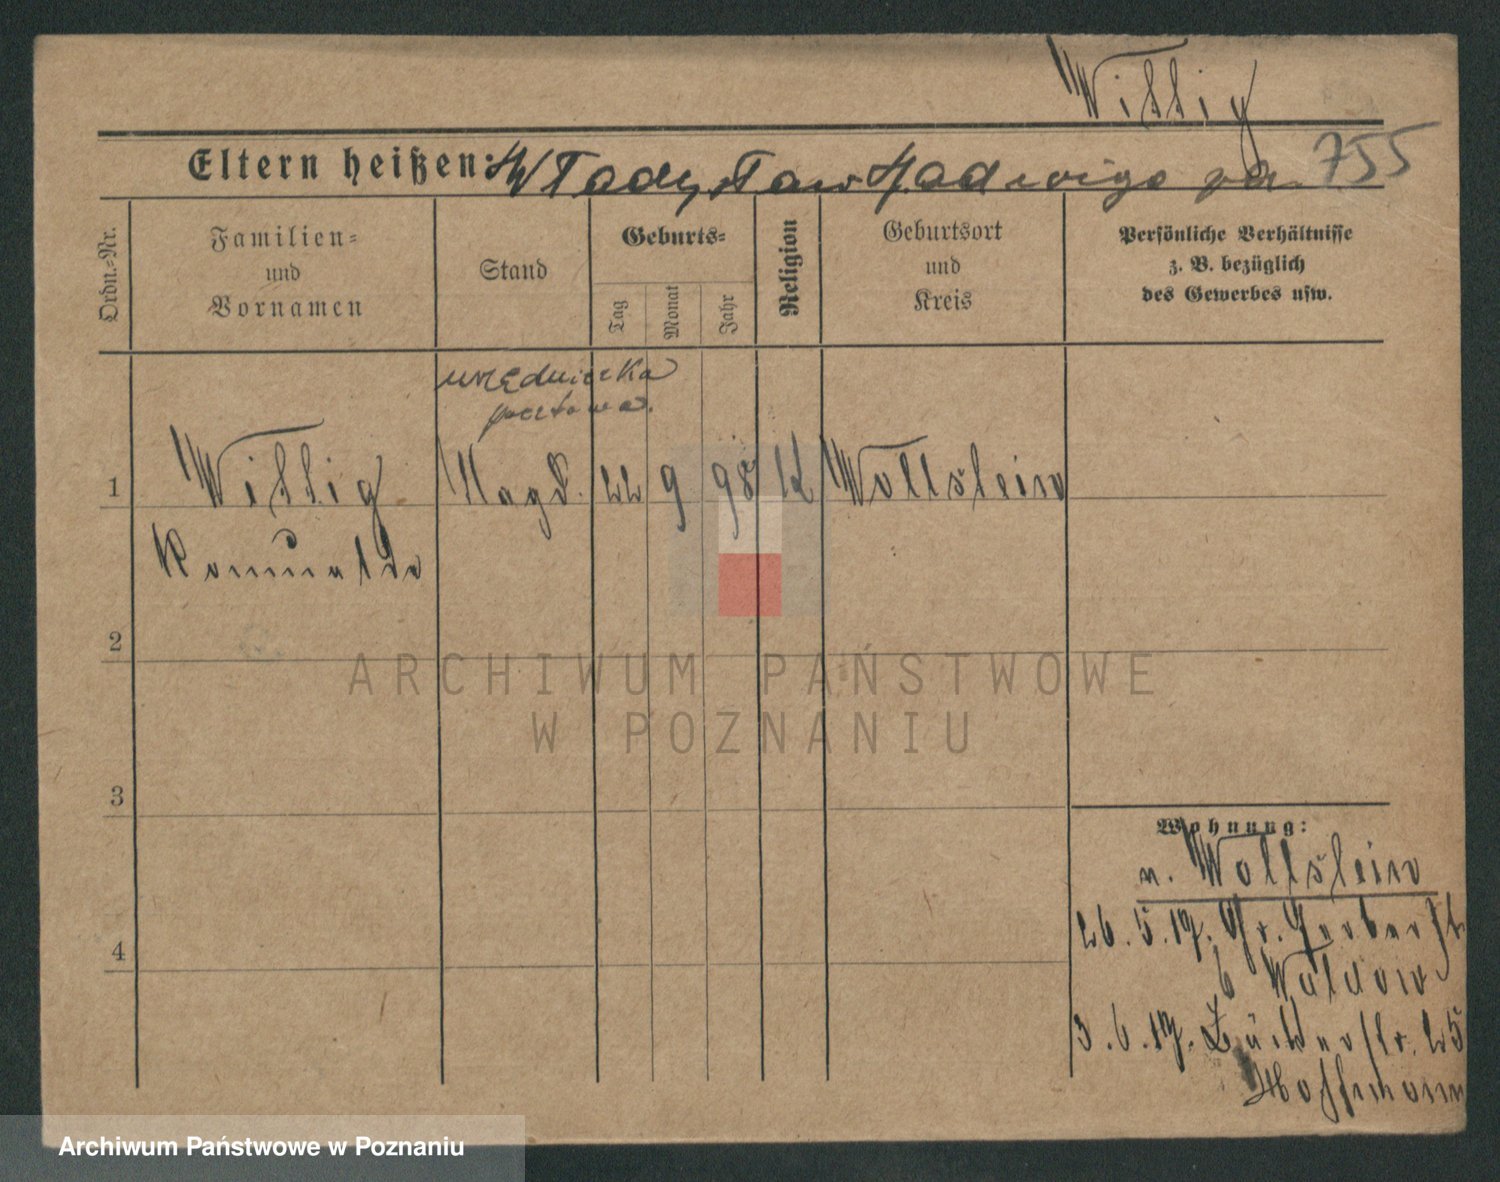 Willig
Eltern heißen: Władysław Hadwiga 755
Ordn.-Nr.
Familien-
und
Vornamen
Stand
Geburts-
Tag
Monat
Jahr
Religion
Geburtsort
und
Kreis
Persönliche Verhältnisse
z. B. bezüglich
des Gewerbes usw.
urzędniczka
pocztowa.
1 Willig Magd. 22 9 98 K Wollstein
Romualda
2
3
4
Wohnung:
n. Wollstein
26. 5. 17. Gr. Gerberstr.
6
3. 6. 17. 25
Hoffmann
ARCHIWUM PAŃSTWOWE
W POZNANIU
Archiwum Państwowe w Poznaniu